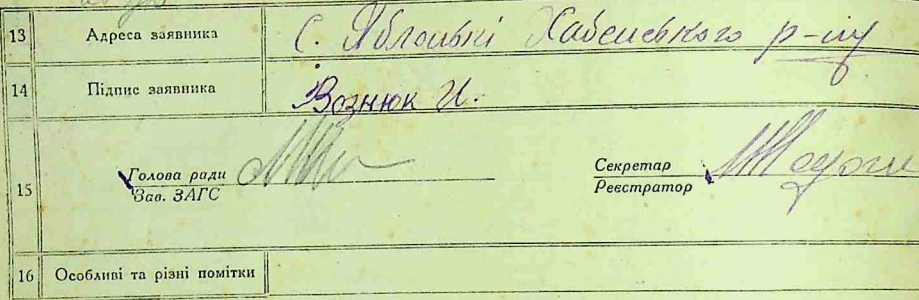 13 Адреса заявника С. Яблонькі Хабенського р-ну
14 Підпис заявника Вознюк И.
15 Голова ради
Зав. ЗАГС
Секретар
Реєстратор
16 Особливі та різні помітки